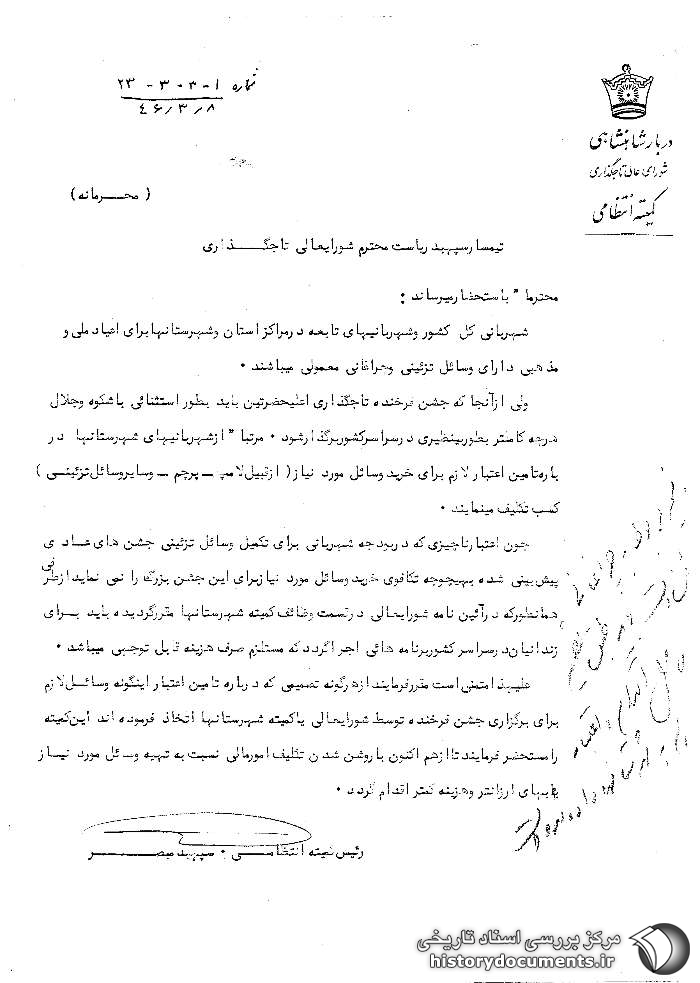 دربار شاهنشاهی
شورای عالی تاجگذاری
کمیته انتظامی
شماره ۱-۳۰۳-۲۳
۴۶/۳/۸
(محـــرمانه)
تیمسار سپهبد ریاست محترم شورایعالی تاجگــذاری
محترما" باستحضار میرساند :
شهربانی کل کشور وشهربانیهای تابعه درمراکز استان وشهرستانهابرای اعیاد ملی و
مذهبی دارای وسائل تزئینی وچراغانی معمولی میباشند ۰
ولی ازآنجا که جشن فرخنده تاجگذاری اعلیحضرتین باید بطور استثنائی باشکوه وجلال
هرچه کاملتر بطوربینظیری درسراسرکشوربرگذارشود ۰ مرتبا" ازشهربانیهای شهرستانها در
باره‌تامین اعتبار لازم برای خرید وسائل مورد نیاز( ازقبیل‌لامپ ـ پرچم ـ وسایروسائل‌تزئینی )
کسب تکلیف مینمایند ۰
چون اعتبارناچیزی که دربودجه شهربانی برای تکمیل وسائل تزئینی جشن های عادی
پیش‌بینی شده بهیچوجه تکافوی خرید وسائل مورد نیازبرای این جشن بزرگ را نمی نمایدازطرفی
همانطورکه درآئین نامه شورایعالی درقسمت وظائف کمیته شهرستانها مقررگردیده باید برای
زندانیان‌درسراسر کشوربرنامه هائی اجراگردد که مستلزم صرف هزینه قابل توجهی میباشد ۰
علیهذامتمنی است مقررفرمایندازهرگونه تصمیمی که درباره تامین اعتبار اینگونه وسائل‌لازم
برای برگزاری جشن فرخنده توسط شورایعالی یاکمیته شهرستانها اتخاذ فرموده اند این‌کمیته
رامستحضر فرمایند تاازهم اکنون باروشن شدن تکلیف امورمالی نسبت به تهیه وسائل مورد نیاز
ببهای ارزانتر وهزینه کمتر اقدام گردد ۰
رئیس کمیته انتظامـــی ۰ سپهبد مبصر
مرکز بررسی اسناد تاریخی
historydocuments.ir